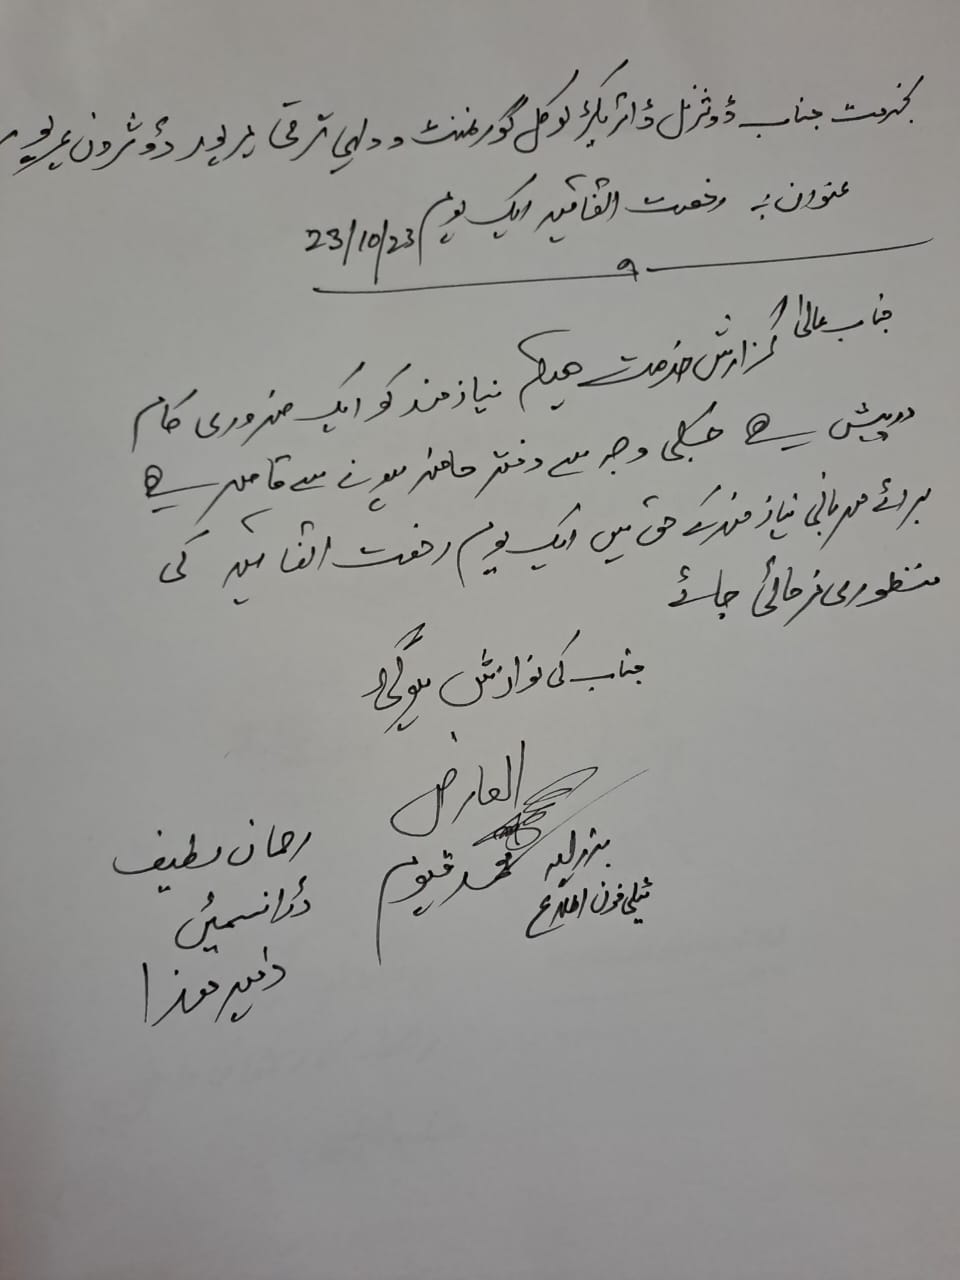 بخدمت جناب ڈویژنل ڈائریکٹر لوکل گورنمنٹ و دیہی ترقی میرپور ڈویژن میرپور
عنوان :۔ رخصت اتفاقیہ ایک یوم 23/10/23
جناب عالیٰ!
گزارش خدمت ہیکہ نیازمند کو ایک ضروری کام
درپیش ہے جسکی وجہ سے دفتر حاضر ہونے سے قاصر ہے
برائے مہربانی نیازمند کے حق میں ایک یوم رخصت اتفاقیہ کی
منظوری فرمائی جائے
جناب کی نوازش ہوگی
العارض
محمد قیوم
بذریعہ
ٹیلی فون اطلاع
رحمان لطیف
ڈرافٹسمین
دفتر ھذا